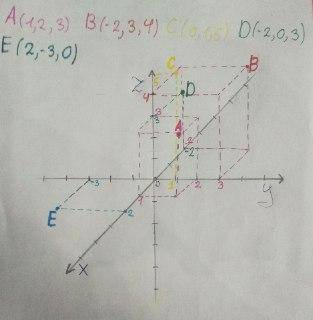 A(1,2,3) B(-2,3,4) C D(-2,0,3)
E(2,-3,0)
C B
Z 5
4 D
3
3
A
2
-2
-3 0 1 2 3 y
1
E 2
x